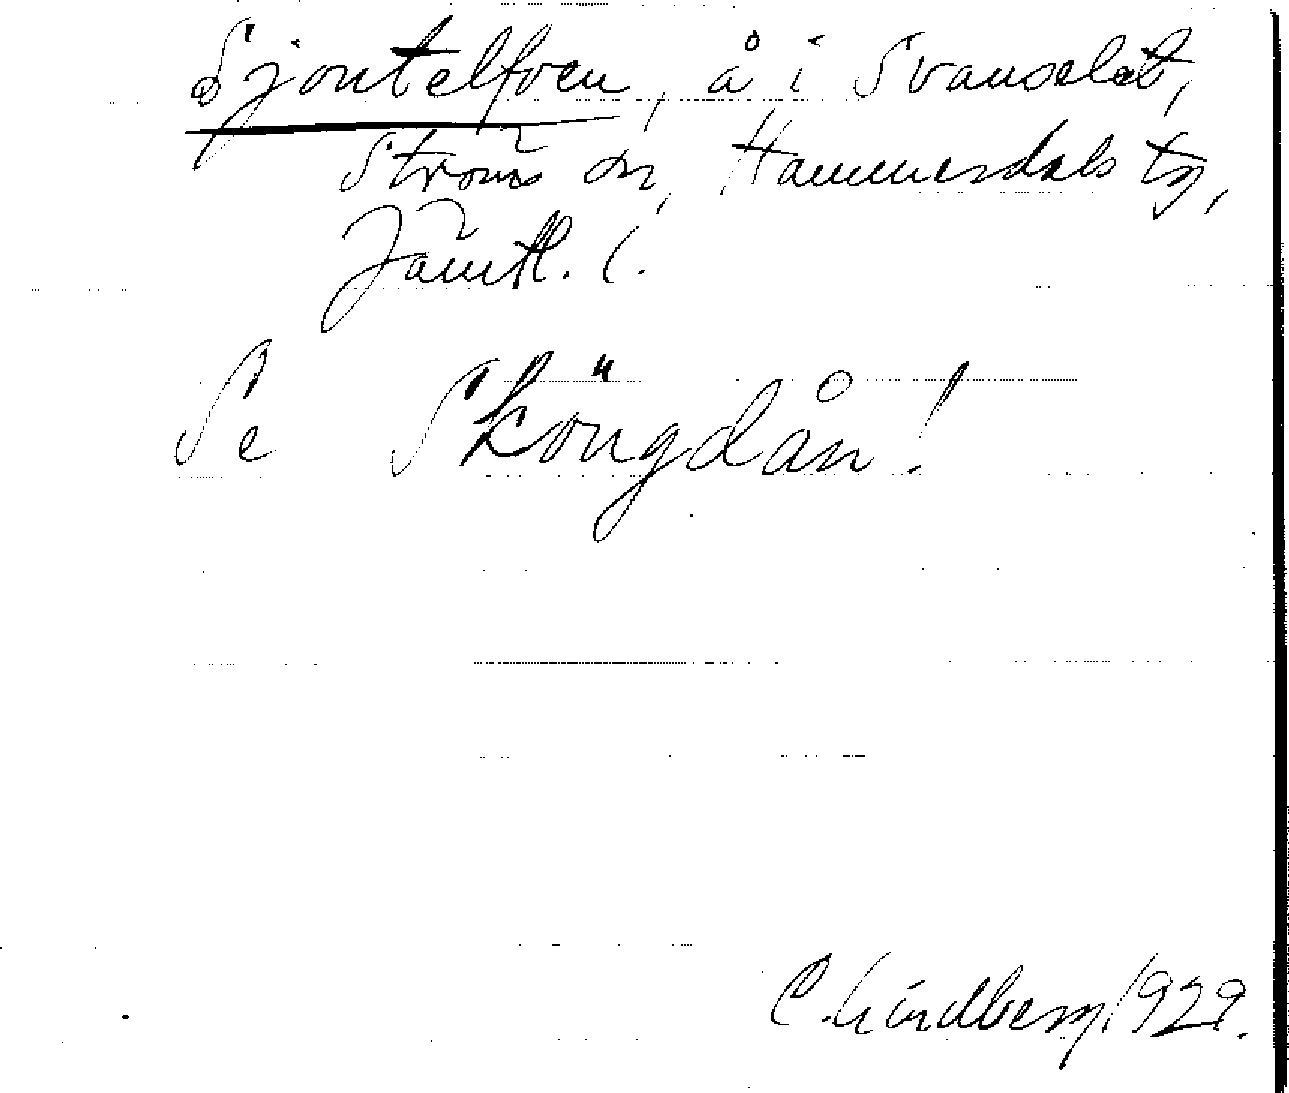 Sjoutelfven, å i Svaneselet,
Ströms sn, Hammerdals tg,
Jämtl. l.
Se Sköngdån!
C. Lindberg 1929.